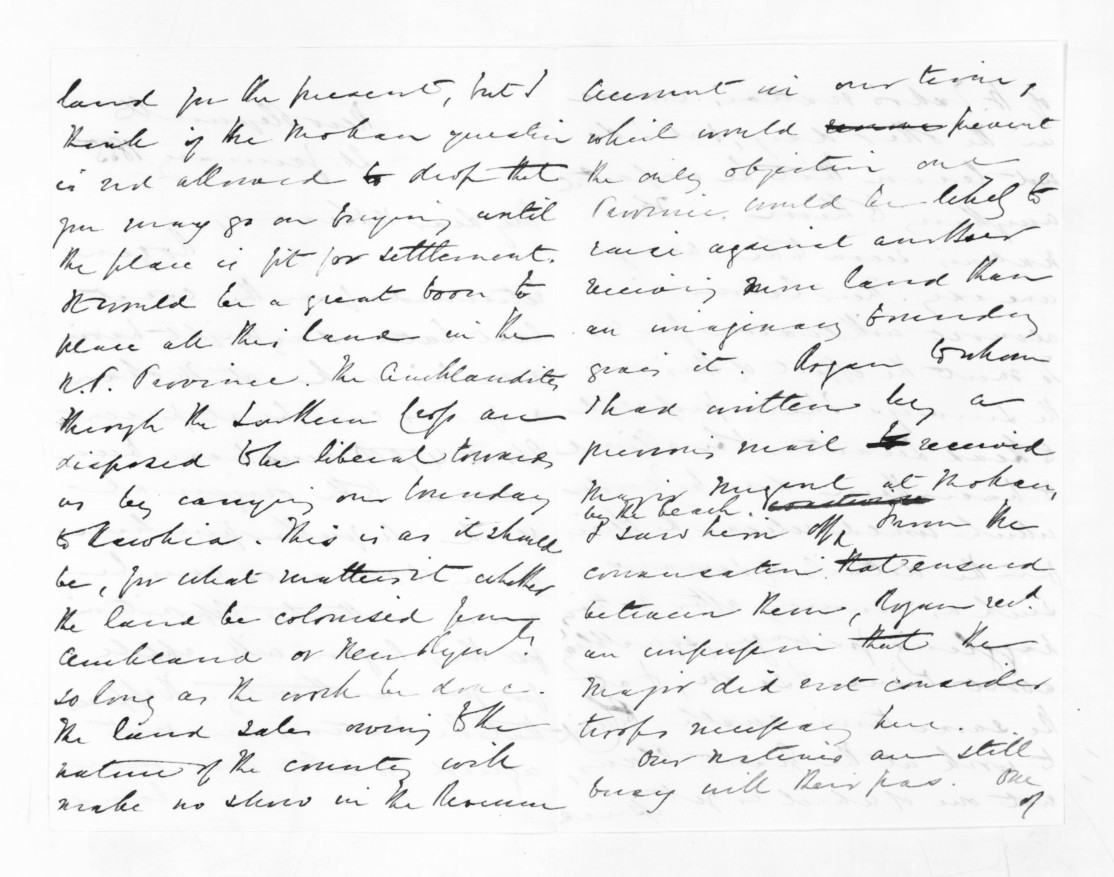 land for the present, but I
think if the Mokau question
is not allowed to drop that
you may go on buying until
the place is fit for settlement.
It would be a great boon to
place all this land in the
N.P. Province. The Aucklandites
through the Southern Cross are
disposed to be liberal towards
us by carrying our boundary
to Kawhia. This is as it should
be, for what matters it whether
the land be colonised from
Auckland or New Plym.th
so long as the work be done.
The land sales owing to the
nature of the country will
make no show in the Revenue
Account in our time,
which would prevent
the only objection one
Province would be likely to
raise against another
receiving more land than
an imaginary boundary
gives it. Rogan to whom
I had written by a
previous mail received
Major Nugent at Mokau,
by the beach.
I saw him off. From the
conversation that ensued
between them, Rogan recd.
an impression that the
Major did not consider
troops necessary here.
Our natives are still
busy with their pas. One
of